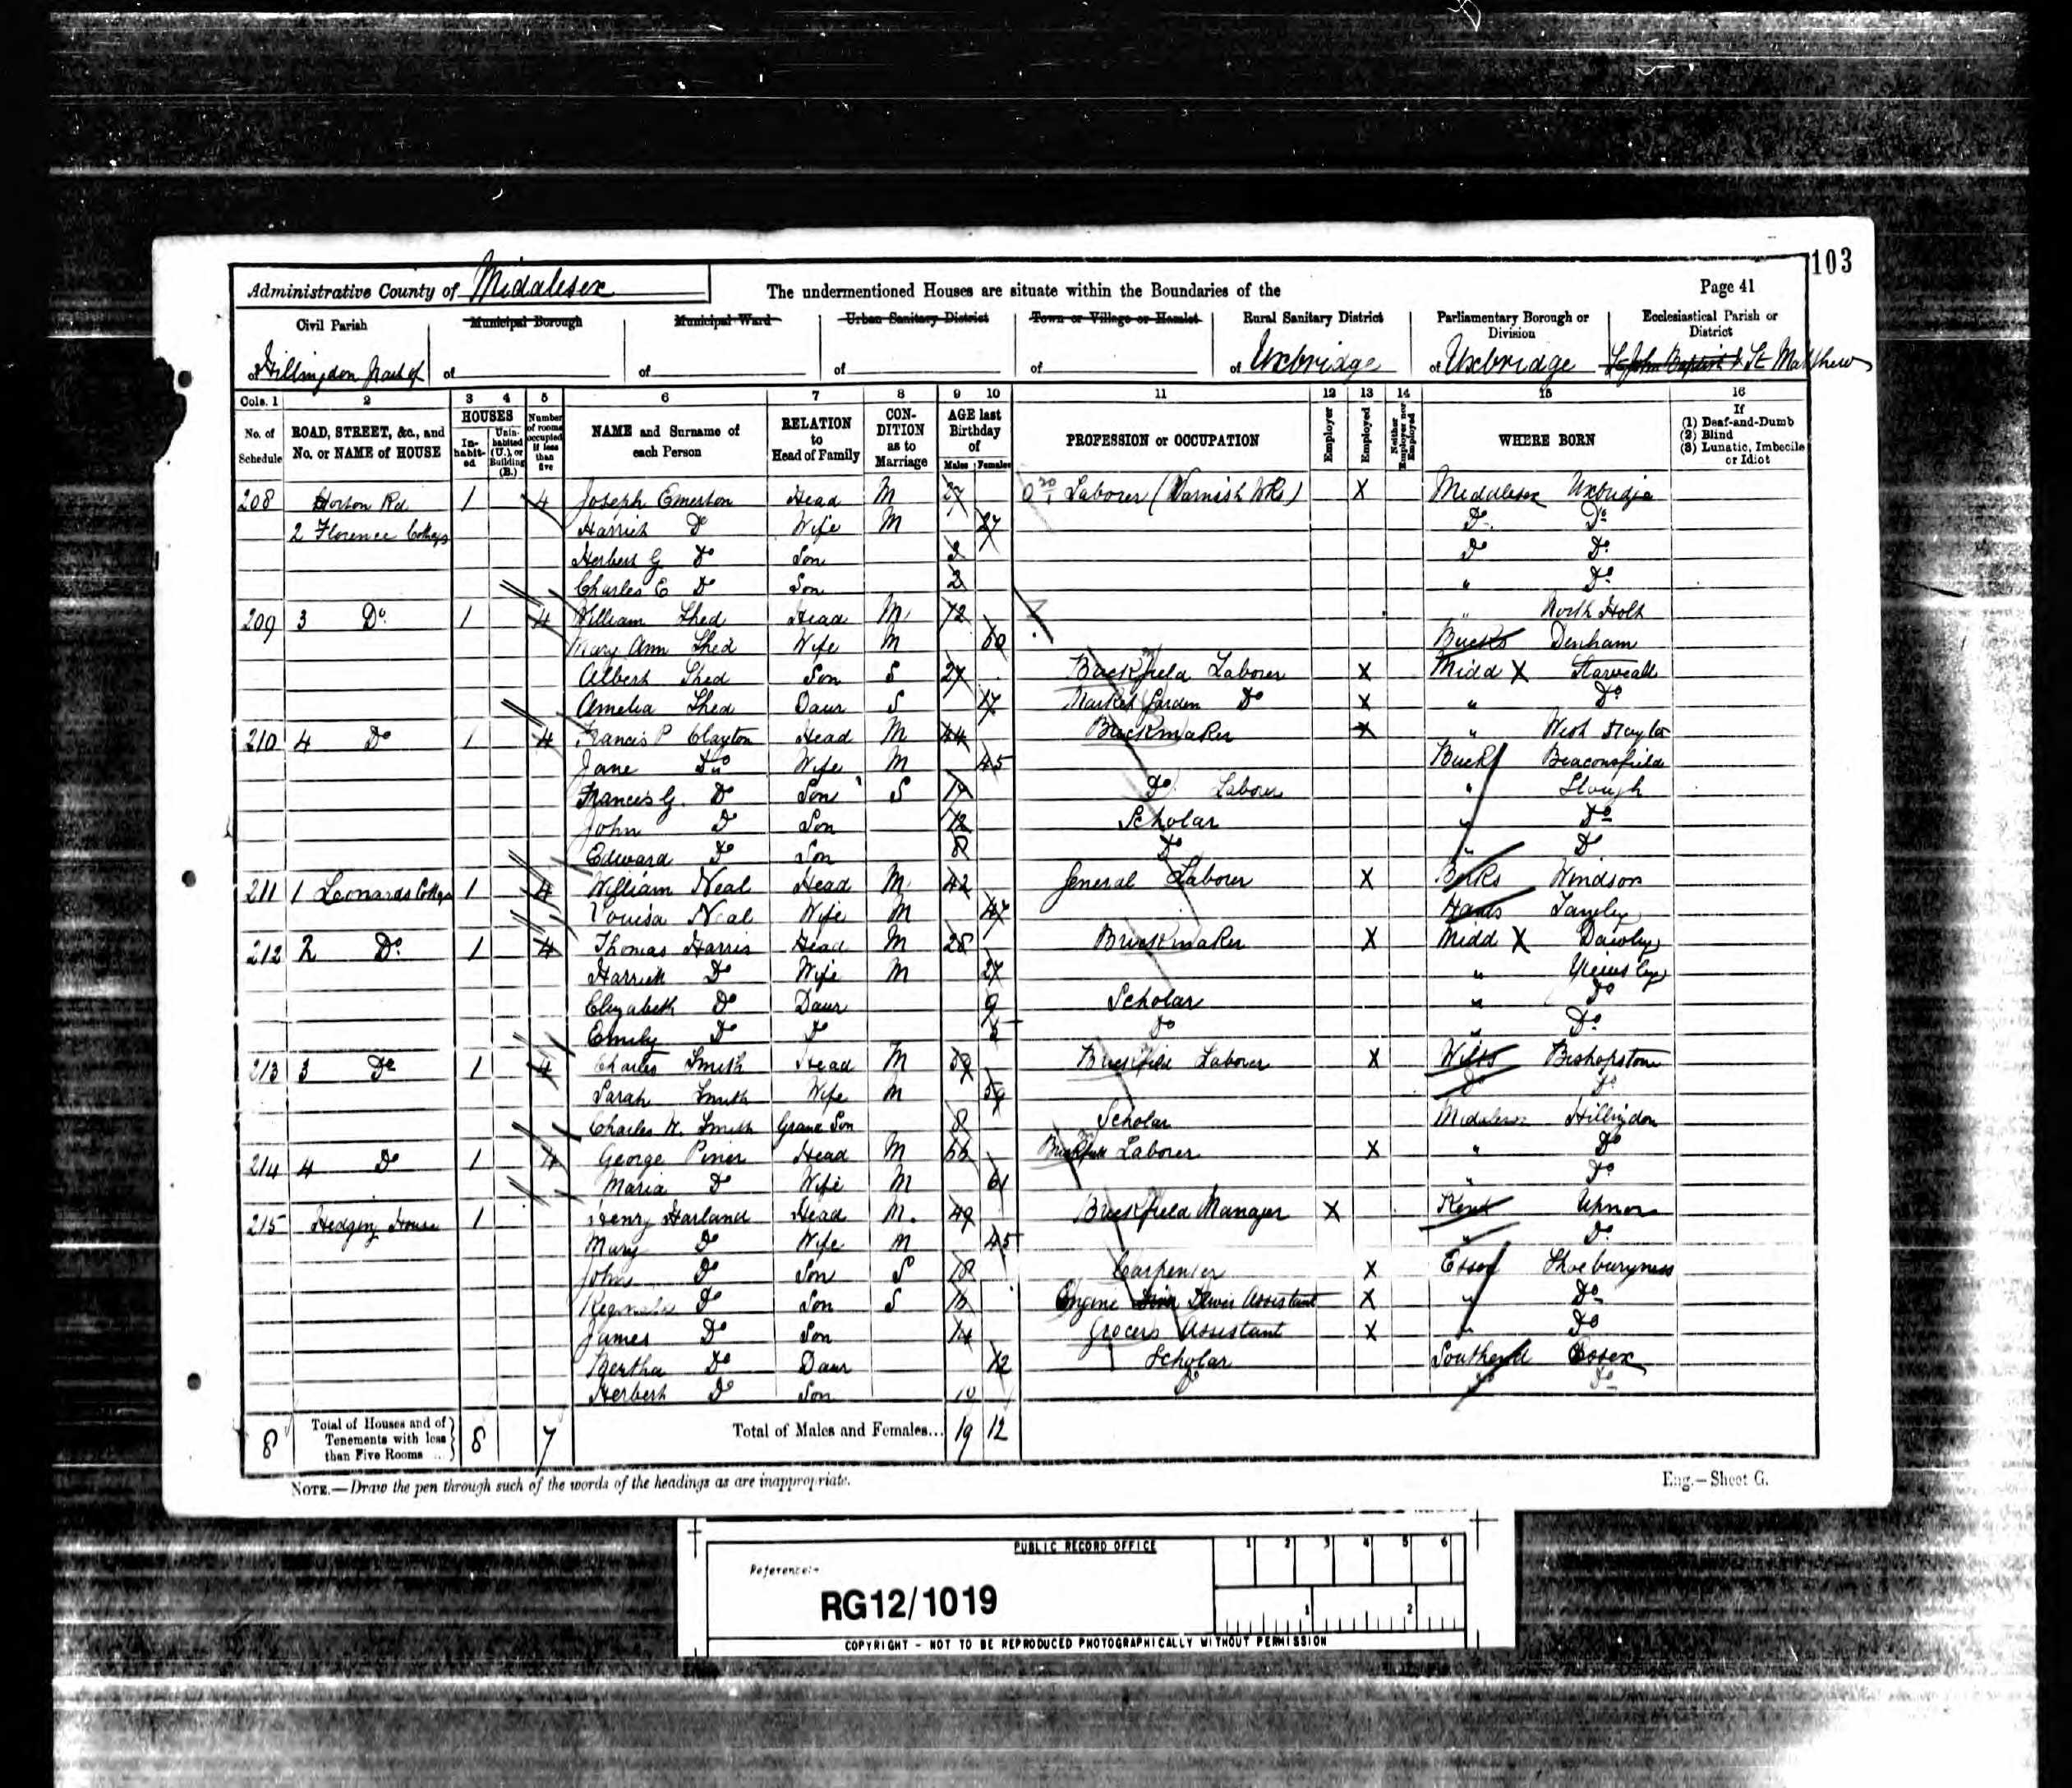 103
Administrative County of Middlesex The undermentioned Houses are situate within the Boundaries of the Page 41
Civil Parish Municipal Borough Municipal Ward Urban Sanitary District Town or Village or Hamlet Rural Sanitary District Parliamentary Borough or Division Ecclesiastical Parish or District
of Hillingdon part of of of of of of Uxbridge of Uxbridge St John Baptist & St Matthew
Cols. 1 2 3 4 5 6 7 8 9 10 11 12 13 14 15 16
No. of Schedule ROAD, STREET, &c., and No. or NAME of HOUSE HOUSES Inhabited Uninhabited (U.), or Building (B.) Number of rooms occupied if less than five NAME and Surname of each Person RELATION to Head of Family CONDITION as to Marriage AGE last Birthday of Males Females PROFESSION or OCCUPATION Employer Employed Neither Employer nor Employed WHERE BORN If (1) Deaf-and-Dumb (2) Blind (3) Lunatic, Imbecile or Idiot
208 Horton Rd 1 4 Joseph Emerton Head M 27 Laborer (Varnish Wks) X Middlesex Uxbridge
2 Florence Cottages Harriet Do Wife M 27 Do Do
Herbert G Do Son Do Do
Charles E Do Son 2 " Do
209 3 Do 1 4 William Shed Head M 72 " North Holt
Mary Ann Shed Wife M 60 Bucks Denham
Albert Shed Son S 27 Brickfield Laborer X Midd X Harwell
Amelia Shed Daur S 17 Market Garden Do X " Do
210 4 Do 1 4 Francis P Clayton Head M 44 Brickmaker X " West Drayton
Jane Do Wife M 45 Bucks Beaconsfield
Francis G. Do Son S 17 Do Laborer " Slough
John Do Son 12 Scholar " Do
Edward Do Son 8 Do " Do
211 1 Leonards Cottages 1 4 William Neal Head M 42 General Laborer X Berks Windsor
Louisa Neal Wife M 47 Hants
212 2 Do 1 4 Thomas Harris Head M 28 Brickmaker X Midd X Dawley
Harriett Do Wife M 27 " Yiewsley
Elizabeth Do Daur 9 Scholar " Do
Emily Do Do 5 Do " Do
213 3 Do 1 4 Charles Smith Head M Brickfield Laborer X Wilts Bishopstone
Sarah Smith Wife M 59 Do Do
Charles W. Smith Grand Son 8 Scholar Middlesex Hillingdon
214 4 Do 1 4 George Piner Head M 66 Brickfield Laborer X " Do
Maria Do Wife M 61 " Do
215 Hedging House 1 Henry Harland Head M. 49 Brickfield Manager X Kent Upnor
Mary Do Wife M 45 " Do
John Do Son S 18 Carpenter X Essex Shoeburyness
Reginald Do Son S 16 Engine Driver Assistant X " Do
James Do Son 14 Grocers Assistant X " Do
Bertha Do Daur 12 Scholar Southend Essex
Herbert Do Son 10 Do Do Do
8 Total of Houses and of Tenements with less than Five Rooms ... 8 7 Total of Males and Females... 19 12
NOTE.—Draw the pen through such of the words of the headings as are inappropriate. Eng.—Sheet G.
PUBLIC RECORD OFFICE 1 2 3 4 5 6
Reference:-
RG12/1019 1 2
COPYRIGHT - NOT TO BE REPRODUCED PHOTOGRAPHICALLY WITHOUT PERMISSION